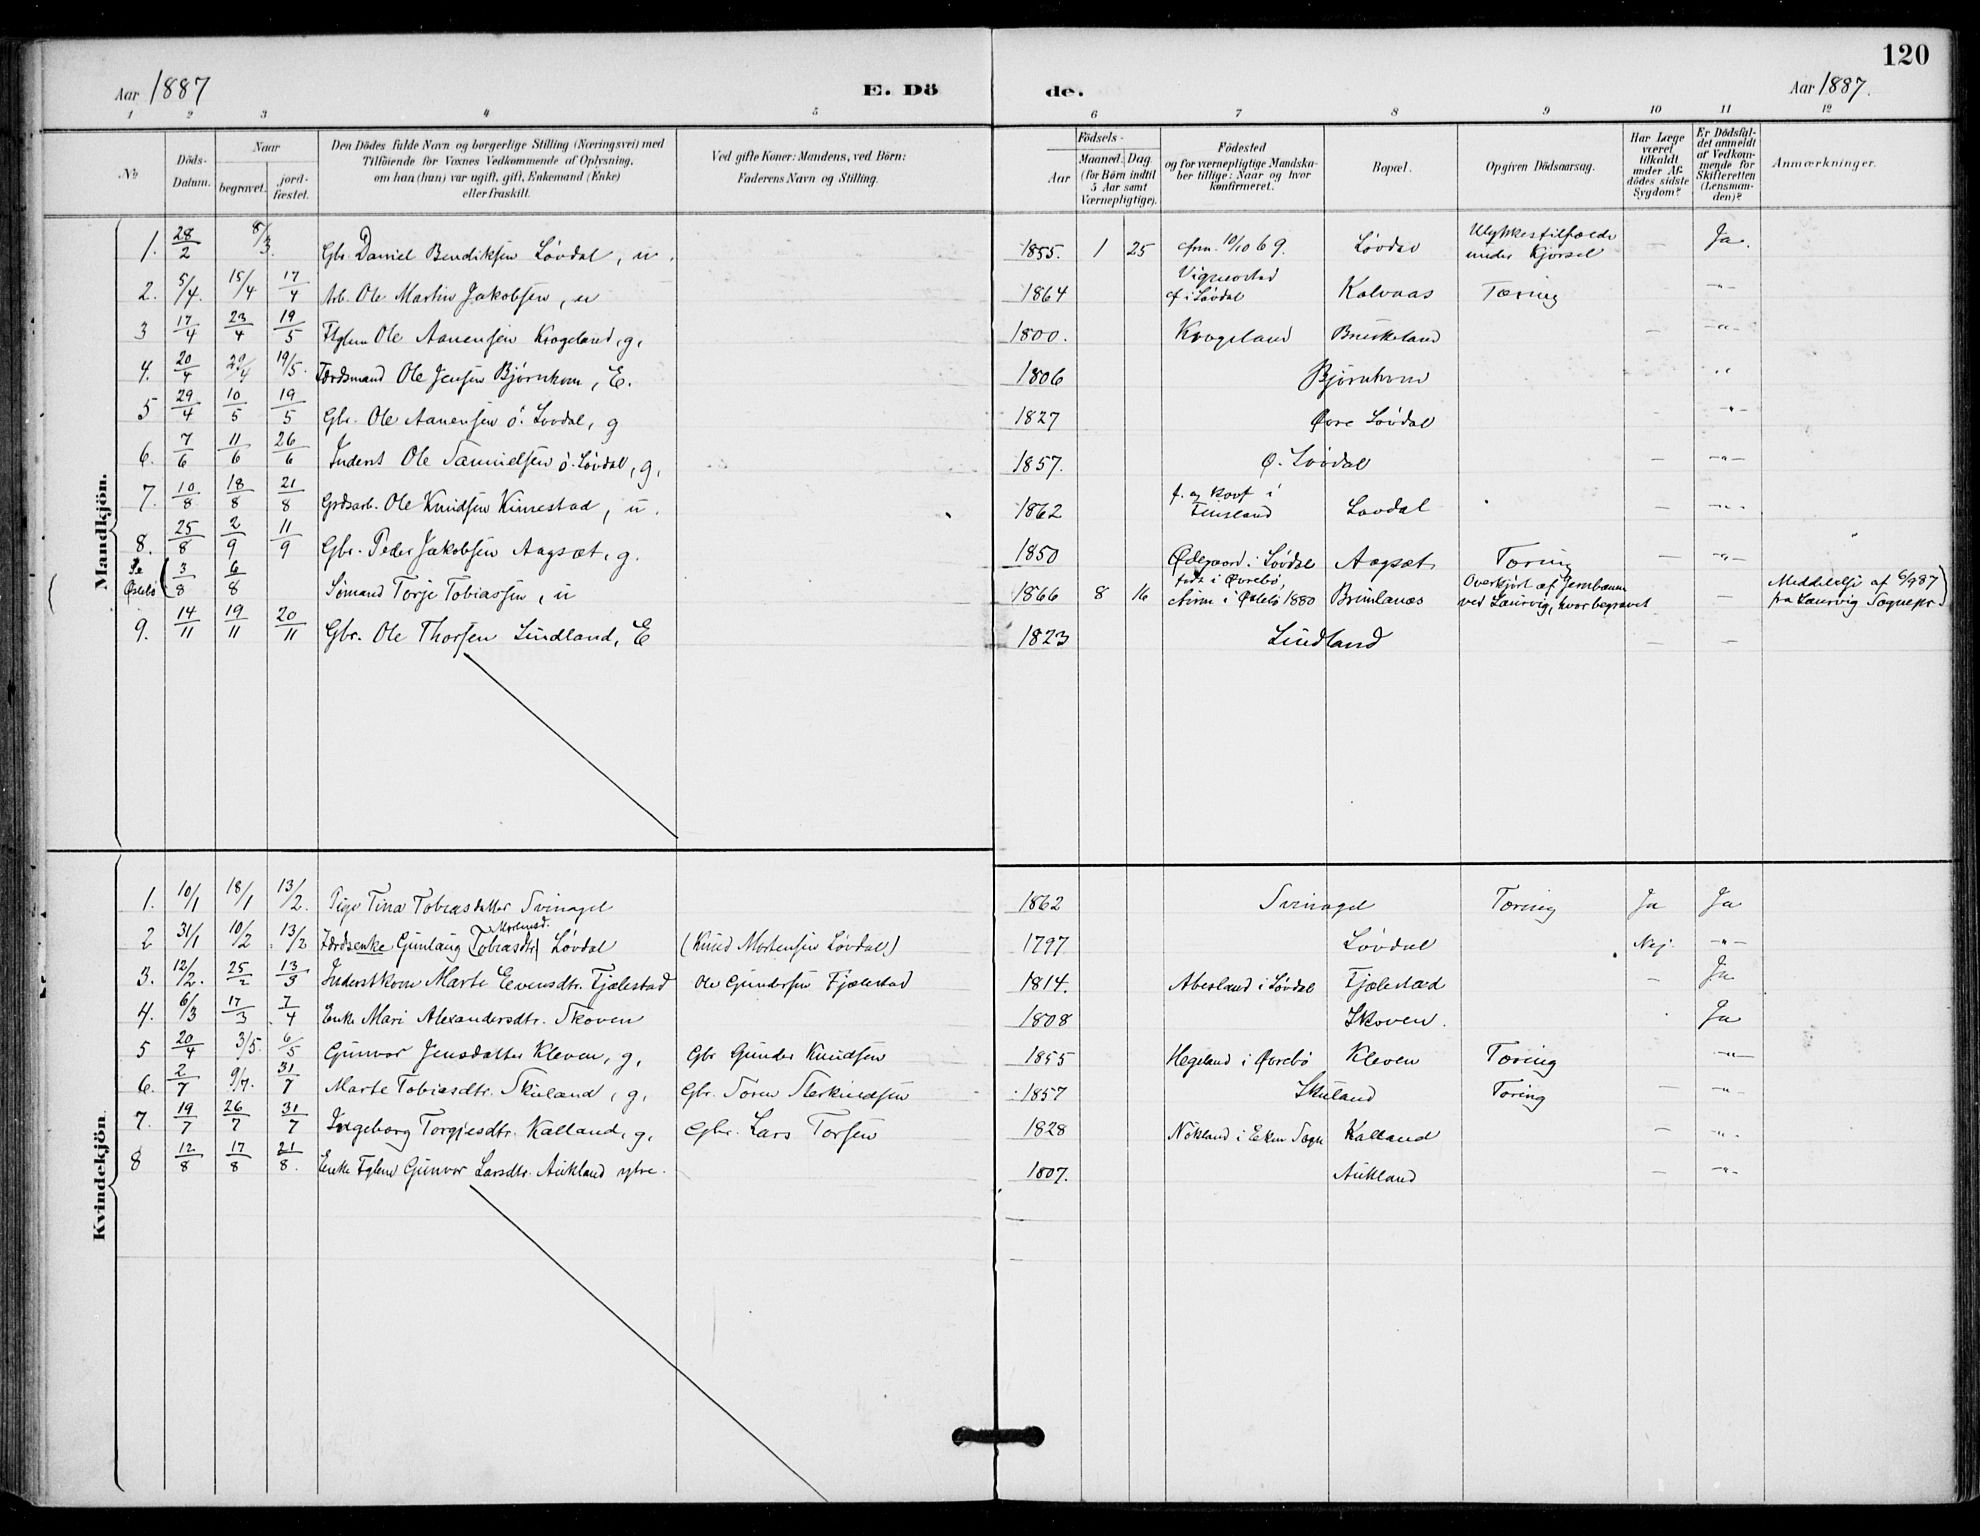 120
Aar 1887 E. Dö de. Aar 1887.
1 2 3 4 5 6 7 8 9 10 11 12
No
Döds-Datum.
Naar
begravet.
jord-fæstet.
Den Dödes fulde Navn og borgerlige Stilling (Næringsvei) med
Tilföiende for Voxnes Vedkommende af Oplysning,
om han (hun) var ugift, gift, Enkemand (Enke)
eller fraskilt.
Ved gifte Koner: Mandens, ved Börn:
Faderens Navn og Stilling.
Födsels-
Aar
Maaned. Dag.
(for Börn indtil
5 Aar samt
Værnepligtige).
Födested
og for værnepligtige Mandska-
ber tillige: Naar og hvor
konfirmeret.
Bopæl.
Opgiven Dödsaarsag.
Har Læge
været
tilkaldt
under Af-
dödes sidste
Sygdom?
Er Dödsfal-
det anmeldt
af Vedkom-
mende for
Skifteretten
(Lensman-
den)?
Anmærkninger.
Mandkjön.
1. 28/2 8/3. Gbr. Daniel Bendiksen Løvdal, u. 1855. 1 25 cfrm. 10/10 69. Løvdal Ulykkestilfælde under Kjørsel — Ja.
2. 5/4. 15/4 17/4 Arb. Ole Martin Jakobsen, u 1864 Vigmostad cf i Løvdal Kalvaas Tæring -"-
3 17/4 23/4 19/5 Ole Aanensen Krogeland, g, 1800. Krogeland — -"-
4. 20/4 29/4 19/5. Ole Jensen Bjørnhom, E. 1806 Bjørnhom "
5 29/4 10/5 19/5 Gbr. Ole Aanensen ö. Lovdal, g 1827 Øvre Løvdal - -"-
6. 7/6 11/6 26/6 Inderst Ole Samuelsen ö. Løvdal, g, 1857. Ø. Løvdal — -"-
7. 10/8 18/8 21/8 Grdsarb. Ole Knudsen Kimestad, u. 1862 f. og konf i Finsland Lovdal — -"-
8. 25/8 2/9 11/9 Gbr. Peder Jakobsen Aagsæt, g. 1850 Ødegaard i Løvdal Aagsæt Tæring — -"-
3/8 6/8 Sømand Torje Tobiassen, u 1866 8 16 født i Øvrebø, Brunlanæs Overkjørt af Jernbanen ved Laurvig, hvor begravet — Meddelelse af 6/9 87 fra Laurvig Sognepr.
9. 14/11 19/11 20/11 Gbr. Ole Thorsen Lindland, E 1823 Lindland — —
Kvindekjön.
1. 10/1 18/1 13/2. Pige Tina Tobiasdatter Svinagel 1862 Svinagel Tæring Ja Ja
2 31/1 10/2 13/2 Gunlaug (Tobiasdtr) Mortensd. Løvdal (Knud Mortensen Løvdal) 1797. Løvdal Nej. -"-
3. 12/2. 25/2 13/3 Inderstkone Marte Evensdtr. Fjælestad Ole Gundersen Fjælestad 1814. Abesland i Løvdal Fjælestad — Ja
4. 6/3 17/3 7/4 Enke Mari Alexandersdtr. Skoven 1808 Skoven. Ja
5 20/4 3/5. 6/5 Gunvor Jensdatter Kleven, g, Gbr Gunder Knudsen 1855 Hegeland i Øvrebö Kleven Tæring -"-
6. 2/7 9/7. 31/7 Marte Tobiasdtr. Skuland, g, Gbr. Søren Sterkindsen 1857 Skuland Tæring — -"-
7. 19/7 26/7 31/7 Ingeborg Torgjesdtr. Kalland, g, Gbr. Lars Torsen 1828 Nökland i Eken Sogn Kalland — -"-
8 12/8 17/8 21/8. Enke Gunvor Larsdtr. Aukland ytre. 1807. Aukland — -"-